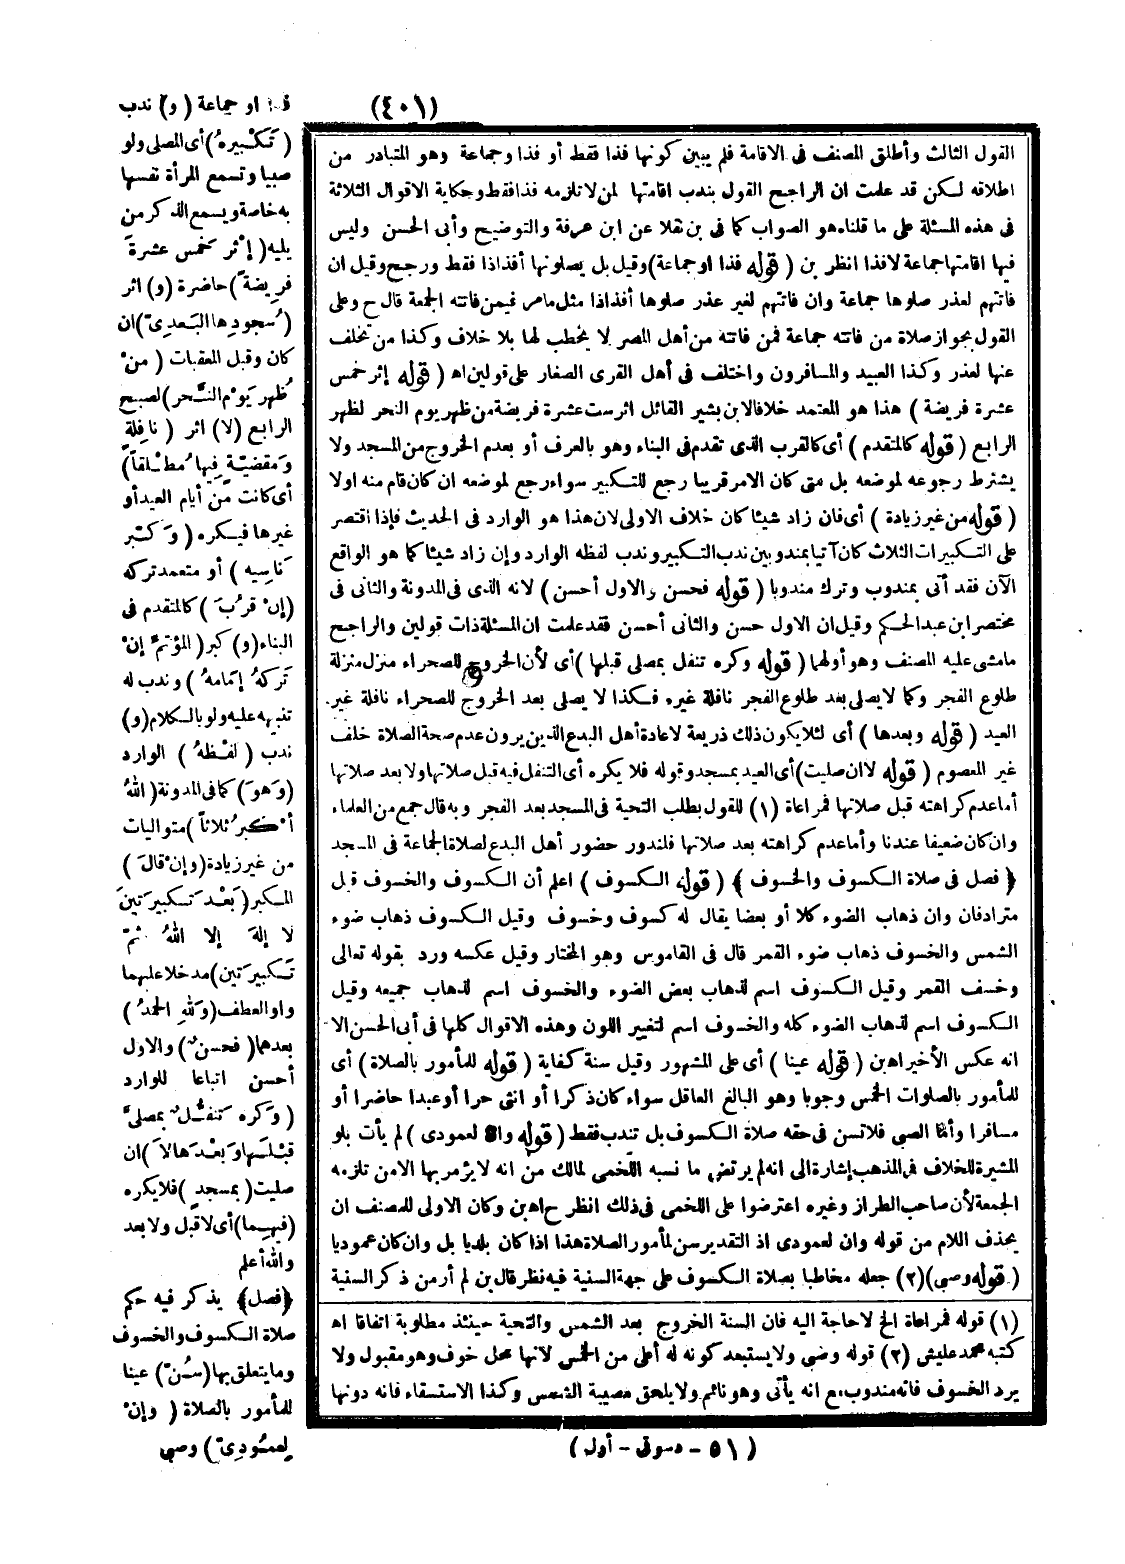 (٤٠١)
القول الثالث وأطلق المصنف فى الاقامة فلم يبين كونها فذا فقط أو فذا وجماعة وهو المتبادر من
اطلاقه لكن قد علمت ان الراجح القول بندب اقامتها لمن لا تلزمه فذا فقط وحكاية الاقوال الثلاثة
فى هذه المسئلة على ما قلناه هو الصواب كما فى بن نقلا عن ابن عرفة والتوضيح وأبى الحسن وليس
فيها اقامتها جماعة لا فذا انظر بن (قوله فذا او جماعة) وقيل بل يصلونها أفذاذا فقط ورجح وقيل ان
فاتتهم لعذر صلوها جماعة وان فاتتهم لغير عذر صلوها أفذاذا مثل مامر فيمن فاتته الجمعة قال ح وعلى
القول بجواز صلاة من فاتته جماعة فمن فاتته من أهل المصر لا يخطب لها بلا خلاف وكذا من تخلف
عنها لعذر وكذا العبيد والمسافرون واختلف فى أهل القرى الصغار على قولين اه (قوله إثر خمس
عشرة فريضة) هذا هو المعتمد خلافا لابن بشير القائل اثر ست عشرة فريضة من ظهر يوم النحر لظهر
الرابع (قوله كالمتقدم) أى كالقرب الذى تقدم فى البناء وهو بالعرف أو بعدم الخروج من المسجد ولا
يشترط رجوعه لموضعه بل متى كان الامر قريبا رجع للتكبير سواء رجع لموضعه ان كان قام منه اولا
(قوله من غير زيادة) أى فان زاد شيئا كان خلاف الاولى لان هذا هو الوارد فى الحديث فإذا اقتصر
على التكبيرات الثلاث كان آتيا بمندوبين ندب التكبير وندب لفظه الوارد وإن زاد شيئا كما هو الواقع
الآن فقد أتى بمندوب وترك مندوبا (قوله فحسن والاول أحسن) لانه الذى فى المدونة والثانى فى
مختصر ابن عبد الحكم وقيل ان الاول حسن والثانى أحسن فقد علمت ان المسئلة ذات قولين والراجح
مامشى عليه المصنف وهو أولهما (قوله وكره تنفل بمصلى قبلها) أى لأن الخروج للصحراء منزل منزلة
طلوع الفجر وكما لا يصلى بعد طلوع الفجر نافلة غيره فكذا لا يصلى بعد الخروج للصحراء نافلة غير
العيد (قوله وبعدها) أى لئلا يكون ذلك ذريعة لاعادة أهل البدع الذين يرون عدم صحة الصلاة خلف
غير المعصوم (قوله لا ان صليت) أى العيد بمسجد وقوله فلا يكره أى التنفل فيه قبل صلاتها ولا بعد صلاتها
أما عدم كراهته قبل صلاتها فمراعاة (١) للقول بطلب التحية فى المسجد بعد الفجر وبه قال جمع من العلماء
وان كان ضعيفا عندنا وأما عدم كراهته بعد صلاتها فلندور حضور أهل البدع لصلاة الجماعة فى المسجد
﴿فصل فى صلاة الكسوف والخسوف﴾ (قوله الكسوف) اعلم أن الكسوف والخسوف قيل
مترادفان وان ذهاب الضوء كلا أو بعضا يقال له كسوف وخسوف وقيل الكسوف ذهاب ضوء
الشمس والخسوف ذهاب ضوء القمر قال فى القاموس وهو المختار وقيل عكسه ورد بقوله تعالى
وخسف القمر وقيل الكسوف اسم لذهاب بعض الضوء والخسوف اسم لذهاب جميعه وقيل
الكسوف اسم لذهاب الضوء كله والخسوف اسم لتغيير اللون وهذه الاقوال كلها فى أبى الحسن الا
انه عكس الأخير اه بن (قوله عينا) أى على المشهور وقيل سنة كفاية (قوله للمأمور بالصلاة) أى
للمأمور بالصلوات الخمس وجوبا وهو البالغ العاقل سواء كان ذكرا أو انثى حرا أو عبدا حاضرا أو
مسافرا وأما الصبى فلا تسن فى حقه صلاة الكسوف بل تندب فقط (قوله وان لعمودى) لم يأت بلو
المشيرة للخلاف فى المذهب إشارة الى انه لم يرتض ما نسبه اللخمى لمالك من انه لا يؤمر بها الا من تلزمه
الجمعة لأن صاحب الطراز وغيره اعترضوا على اللخمى فى ذلك انظر ح اه بن وكان الاولى للمصنف ان
يحذف اللام من قوله وان لعمودى اذ التقدير سن لمأمور الصلاة هذا اذا كان بلديا بل وان كان عموديا
(قوله وصبى) (٢) جعله مخاطبا بصلاة الكسوف على جهة السنية فيه نظر قال بن لم أر من ذكر السنية
(١) قوله فمراعاة الخ لا حاجة اليه فان السنة الخروج بعد الشمس والتحية حينئذ مطلوبة اتفاقا اه
كتبه محمد عليش (٢) قوله وصبى ولا يستبعد كونه له أعلى من الخمس لانها محل خوف وهو مقبول ولا
يرد الخسوف فانه مندوب مع انه يأتى وهو نائم ولا يلحق مصيبة الشمس وكذا الاستسقاء فانه دونها
فذا او جماعة (و) ندب
(تَكْبيرهُ) أى المصلى ولو
صبيا وتسمع المرأة نفسها
به خاصة ويسمع الذكر من
يليه (إثر خمس عشرةَ
فريضةً) حاضرة (و) اثر
(سُجودِها البَعدِىّ) ان
كان وقبل المعقبات (منْ
ظُهر يَوْم النَّحر) لصبح
الرابع (لا) اثر (نافِلةٍ
ومَقضيّةٍ فيها مُطْلقاً)
أى كانت من أيام العيد أو
غيرها فيكره (وَكبّر
ناسِيه) أو متعمد تركه
(إنْ قرُبَ) كالمتقدم فى
البناء (و) كبر (المؤتمّ إنْ
تَركهُ إمَامهُ) وندب له
تنبيهه عليه ولو بالكلام (و)
ندب (لفْظهُ) الوارد
(وَهوَ) كما فى المدونة (اللهُ
أكبرُ ثلاثاً) متواليات
من غير زيادة (وإنْ قالَ)
المكبر (بَعْدَ تَكبيرَتينَ
لا إلهَ إلا اللهُ ثمّ
تَكبيرَتين) مدخلا عليهما
واو العطف (وَللهِ الحمدُ)
بعدهما (فحسنٌ) والاول
أحسن اتباعا للوارد
(وَكره تنفُّلٌ بمصلىً
قبْلَها وَبعْدَها لا) ان
صليت (بمسجدٍ) فلا يكره
(فيهما) أى لا قبل ولا بعد
والله أعلم
﴿فصل﴾ يذكر فيه حكم
صلاة الكسوف والخسوف
وما يتعلق بها (سُنّ) عينا
للمأمور بالصلاة (وإنْ
لِعمُودِىّ) وصبى
(٥١ - دسوقى - أول)